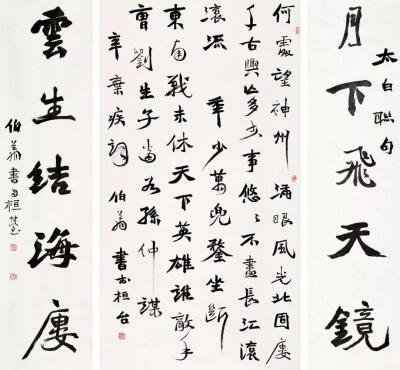 月下飛天鏡
太白聯句
何處望神州滿眼風光北固廔
千古興亡多少事悠〻不盡長江滾
滾流年少萬兜鍪坐斷
東南戰未休天下英雄誰敵手
曹劉生子當如孫仲謀
辛棄疾詞伯書於桓台
雲生結海廔
伯書於桓臺